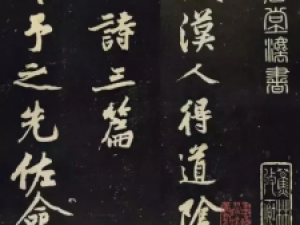 堂灋書
漢人得道陰
詩三篇
予之先佐命